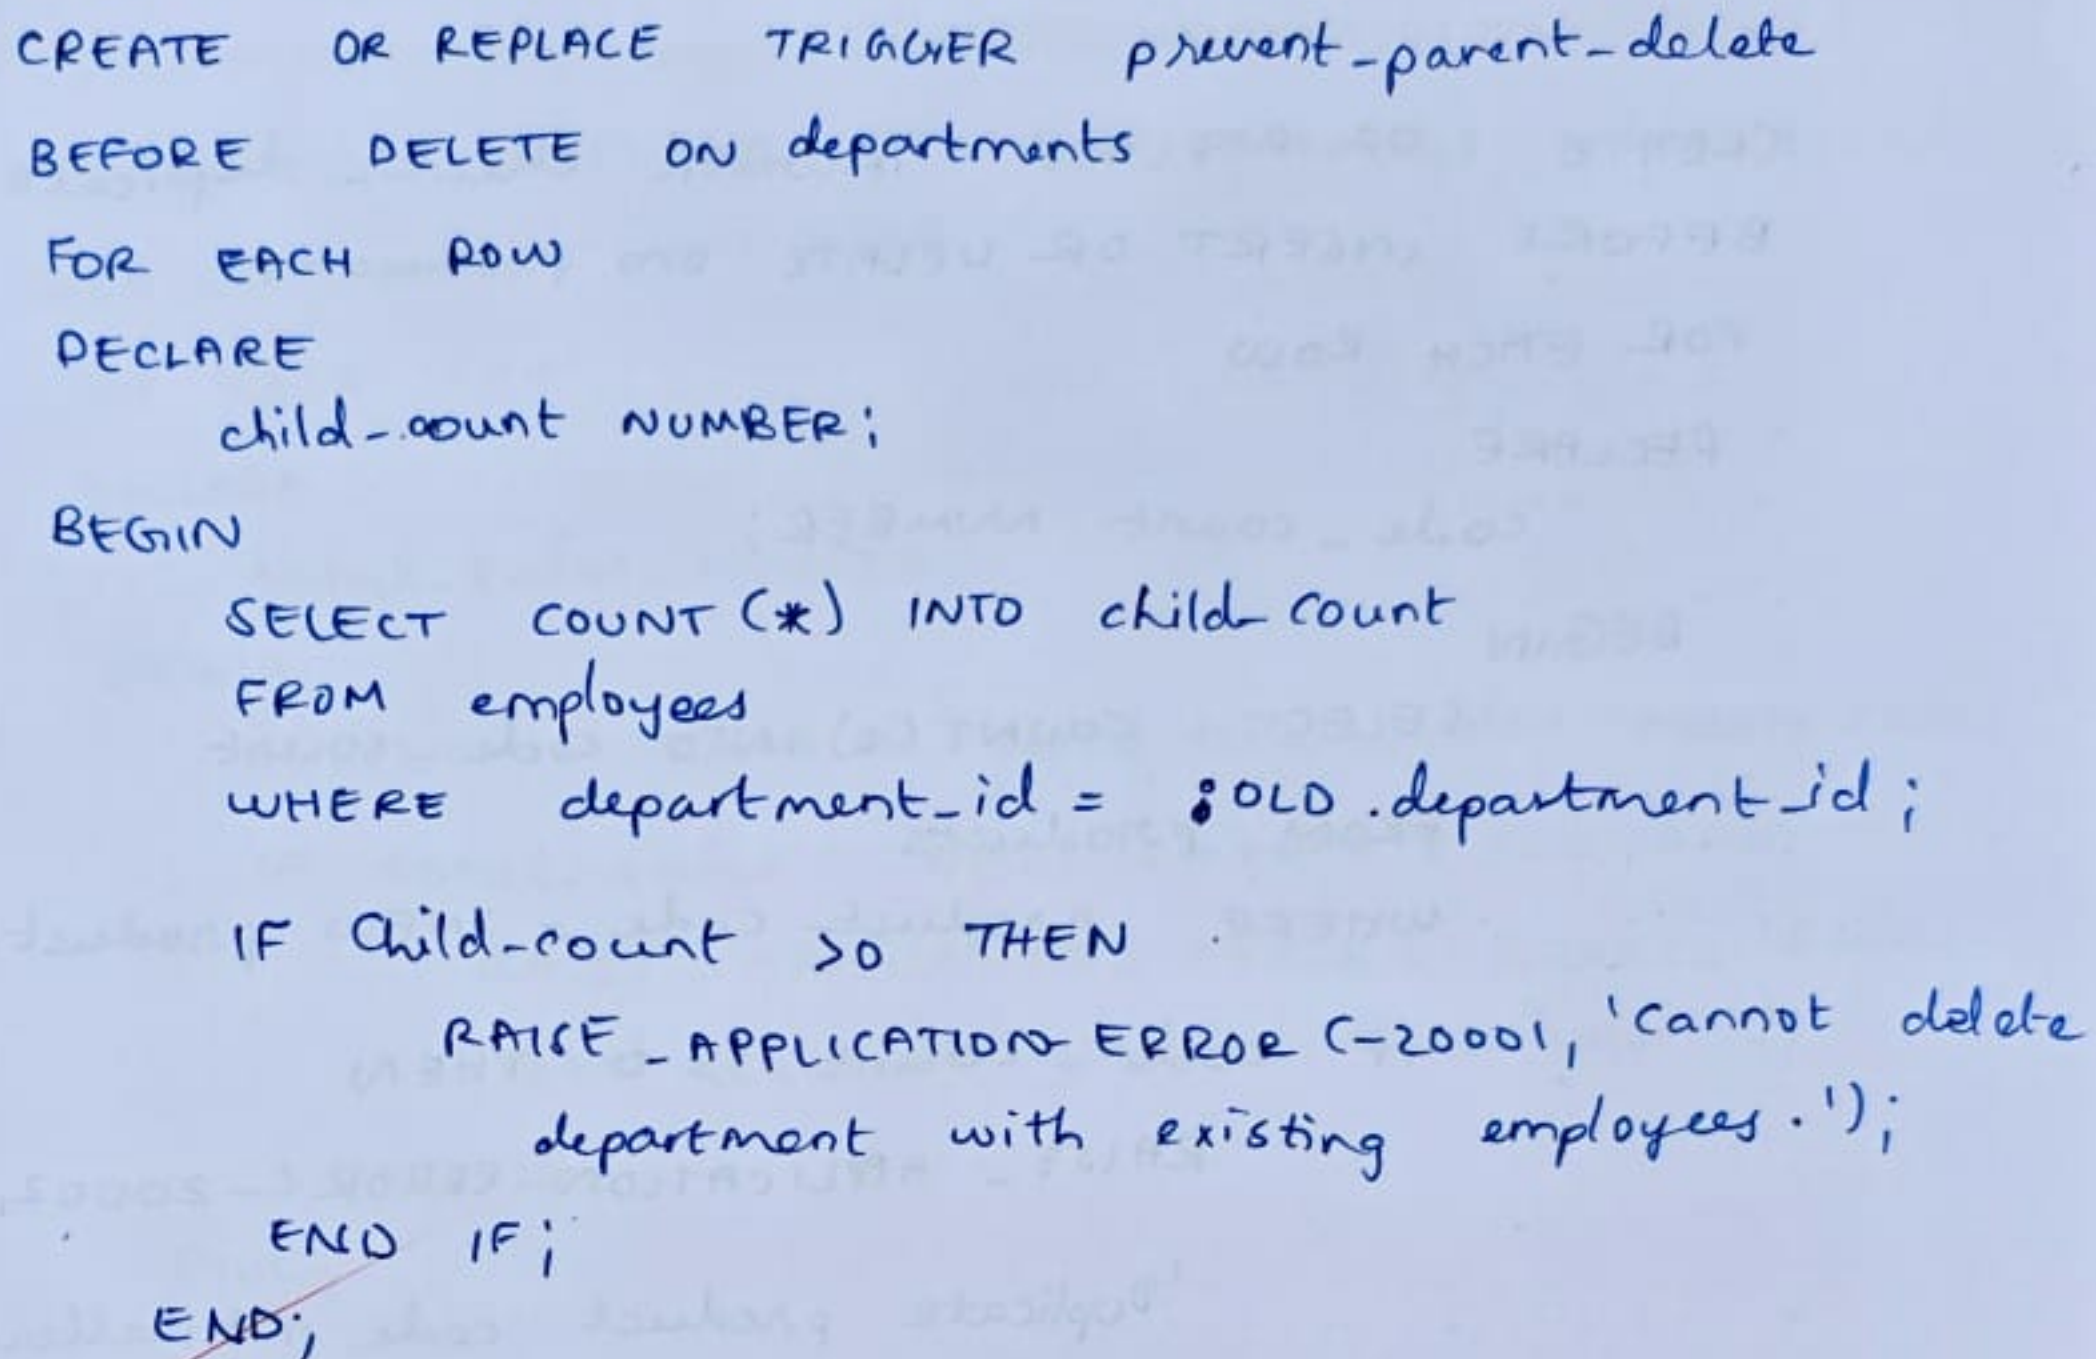 CREATE OR REPLACE TRIGGER prevent_parent_delete
BEFORE DELETE ON departments
FOR EACH ROW
DECLARE
child_count NUMBER;
BEGIN
SELECT COUNT (*) INTO child_count
FROM employees
WHERE department_id = :OLD.department_id;
IF Child_count >0 THEN
RAISE_APPLICATION_ERROR (-20001, 'Cannot delete
department with existing employees.');
END IF;
END;